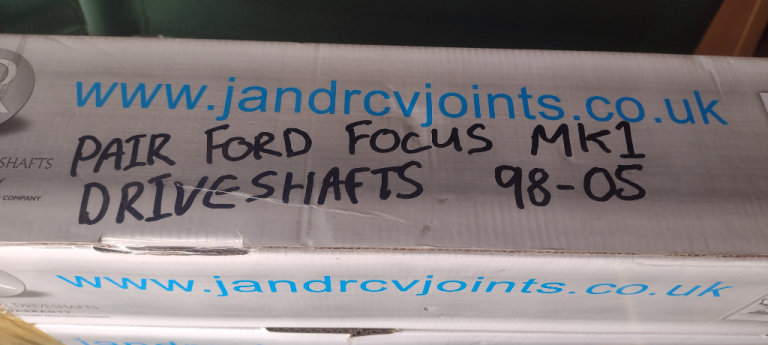 R
www.jandrcvjoints.co.uk
SHAFTS
COMPANY
PAIR FORD FOCUS MK1
DRIVESHAFTS 98-05
www.jandrcvjoints.co.uk
DRIVESHAFTS
WARRANTY